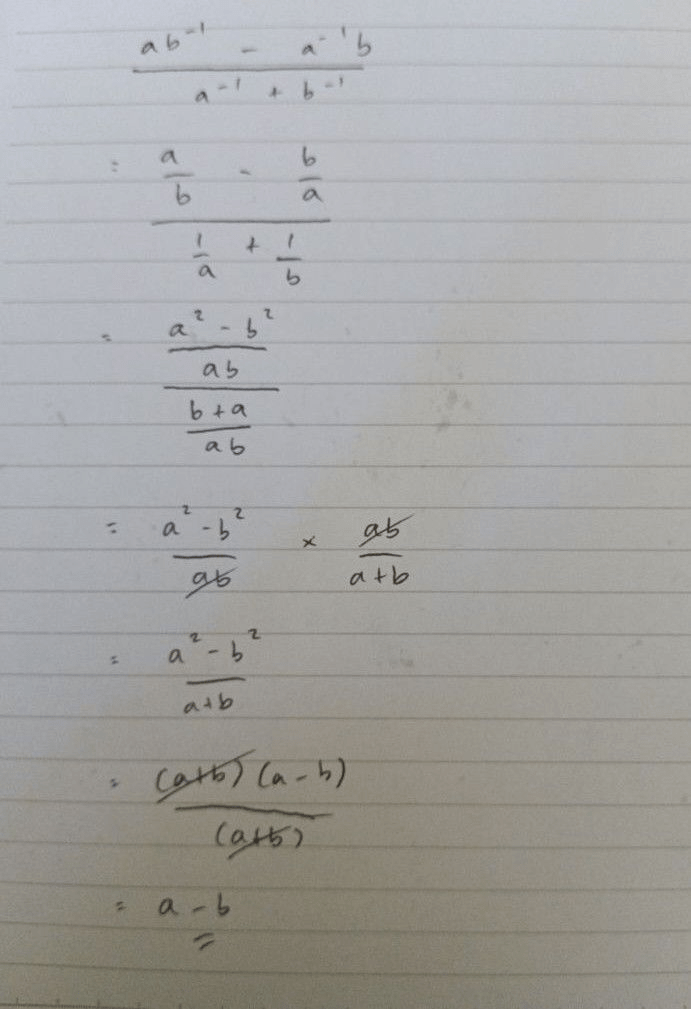 ab⁻¹ - a⁻¹b
a⁻¹ + b⁻¹
= a/b - b/a
1/a + 1/b
= a² - b²
ab
b + a
ab
= a² - b² × ab
ab a+b
= a² - b²
a+b
= (a+b) (a - b)
(a+b)
= a - b